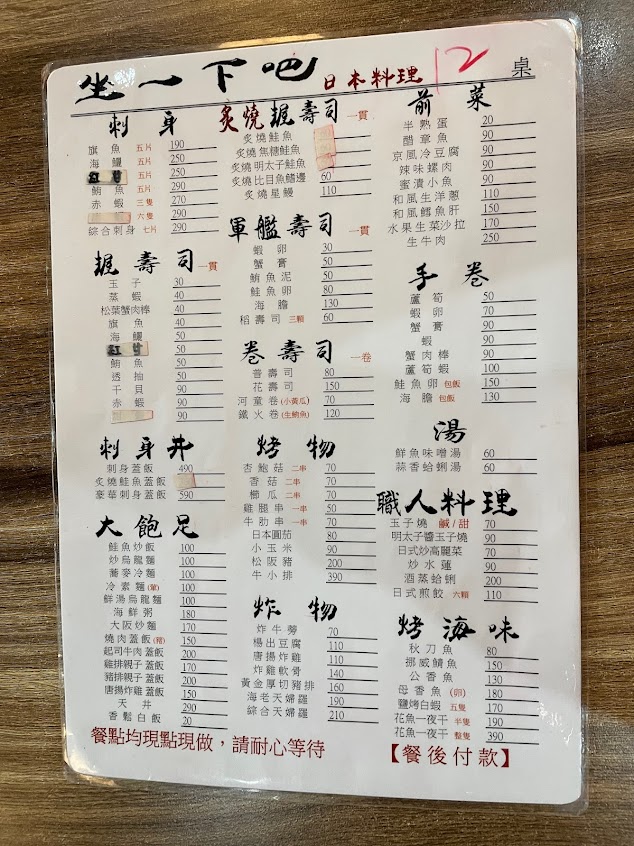 坐一下吧 日本料理 12 桌
刺身
旗魚 五片 190
海鱺 五片 250
紅甘 五片 250
鮪魚 五片 290
赤蝦 三隻 270
六隻 290
綜合刺身 七片 290
握壽司 一貫
玉子 30
蒸蝦 40
松葉蟹肉棒 40
旗魚 40
海鱺 50
紅甘 50
鮪魚 50
透抽 50
干貝 90
赤蝦 90
90
刺身丼
刺身蓋飯 490
炙燒鮭魚蓋飯
豪華刺身蓋飯 590
大飽足
鮭魚炒飯 100
炒烏龍麵 100
蕎麥冷麵 100
冷素麵(葷) 100
鮮湯烏龍麵 100
海鮮粥 180
大阪炒麵 170
燒肉蓋飯(豬) 150
起司牛肉蓋飯 200
雞排親子蓋飯 170
豬排親子蓋飯 200
唐揚炸雞蓋飯 150
天丼 290
香鬆白飯 20
炙燒握壽司 一貫
炙燒鮭魚
炙燒焦糖鮭魚
炙燒明太子鮭魚
炙燒比目魚鰭邊 60
炙燒星鰻 110
軍艦壽司 一貫
蝦卵 30
蟹膏 50
鮪魚泥 50
鮭魚卵 80
海膽 130
稻壽司 三顆 60
卷壽司 一卷
普壽司 80
花壽司 150
河童卷(小黃瓜) 70
鐵火卷(生鮪魚) 120
烤物
杏鮑菇 二串 70
香菇 二串 70
櫛瓜 二串 70
雞腿串 一串 50
牛肋串 一串 70
日本圓茄 80
小玉米 90
松阪豬 200
牛小排 390
炸物
炸牛蒡 70
楊出豆腐 110
唐揚炸雞 110
炸雞軟骨 140
黃金厚切豬排 160
海老天婦羅 190
綜合天婦羅 210
前菜
半熟蛋 20
醋章魚 90
京風冷豆腐 90
辣味螺肉 90
蜜漬小魚 90
和風生洋蔥 110
和風鱈魚肝 150
水果生菜沙拉 170
生牛肉 250
手卷
蘆筍 50
蝦卵 70
蟹膏 90
蝦 90
蟹肉棒 90
蘆筍蝦 100
鮭魚卵 包飯 150
海膽 包飯 130
湯
鮮魚味噌湯 60
蒜香蛤蜊湯 60
職人料理
玉子燒 鹹/甜 70
明太子醬玉子燒 90
日式炒高麗菜 70
炒水蓮 90
酒蒸蛤蜊 200
日式煎餃 六顆 110
烤海味
秋刀魚 80
挪威鯖魚 150
公香魚 130
母香魚(卵) 180
鹽烤白蝦 五隻 170
花魚一夜干 半隻 190
花魚一夜干 整隻 390
餐點均現點現做，請耐心等待
【餐後付款】